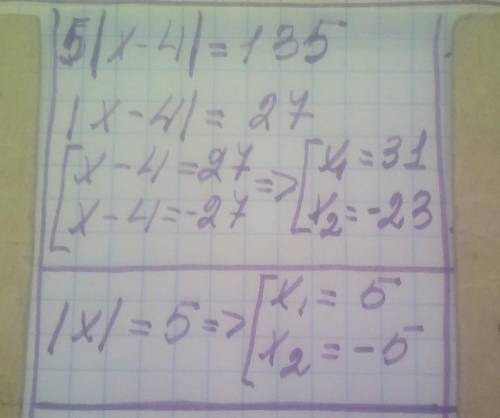 5|x-4|=135
|x-4|=27
[x-4=27 => [x₁=31
x-4=-27 x₂=-23
|x|=5=> [x₁=5
x₂=-5